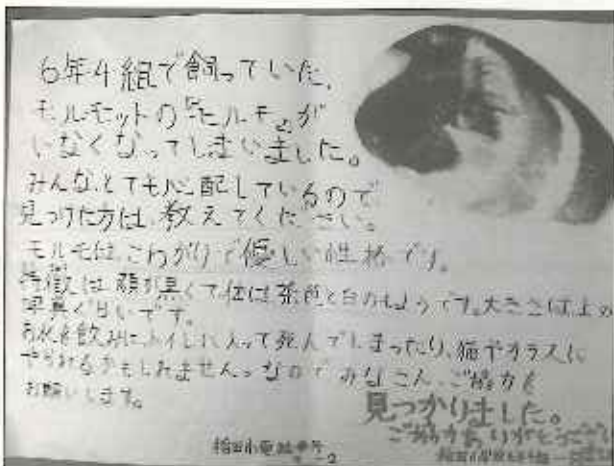 6年4組で飼っていた、
モルモットの『モルモ』が
いなくなってしまいました。
みんなとても心配しているので
見つけた方は、教えてください。
モルモは、こわがりで優しい性格です。
特徴は顔が黒くて体は茶色と白のもようです。大きさは上の
写真ぐらいです。
お水を飲みにトイレに入って死んでしまったり、猫やカラスに
やられるかもしれません。なのでみなさん、ご協力を
お願いします。
見つかりました。
ご協力ありがとうござい
稲田小